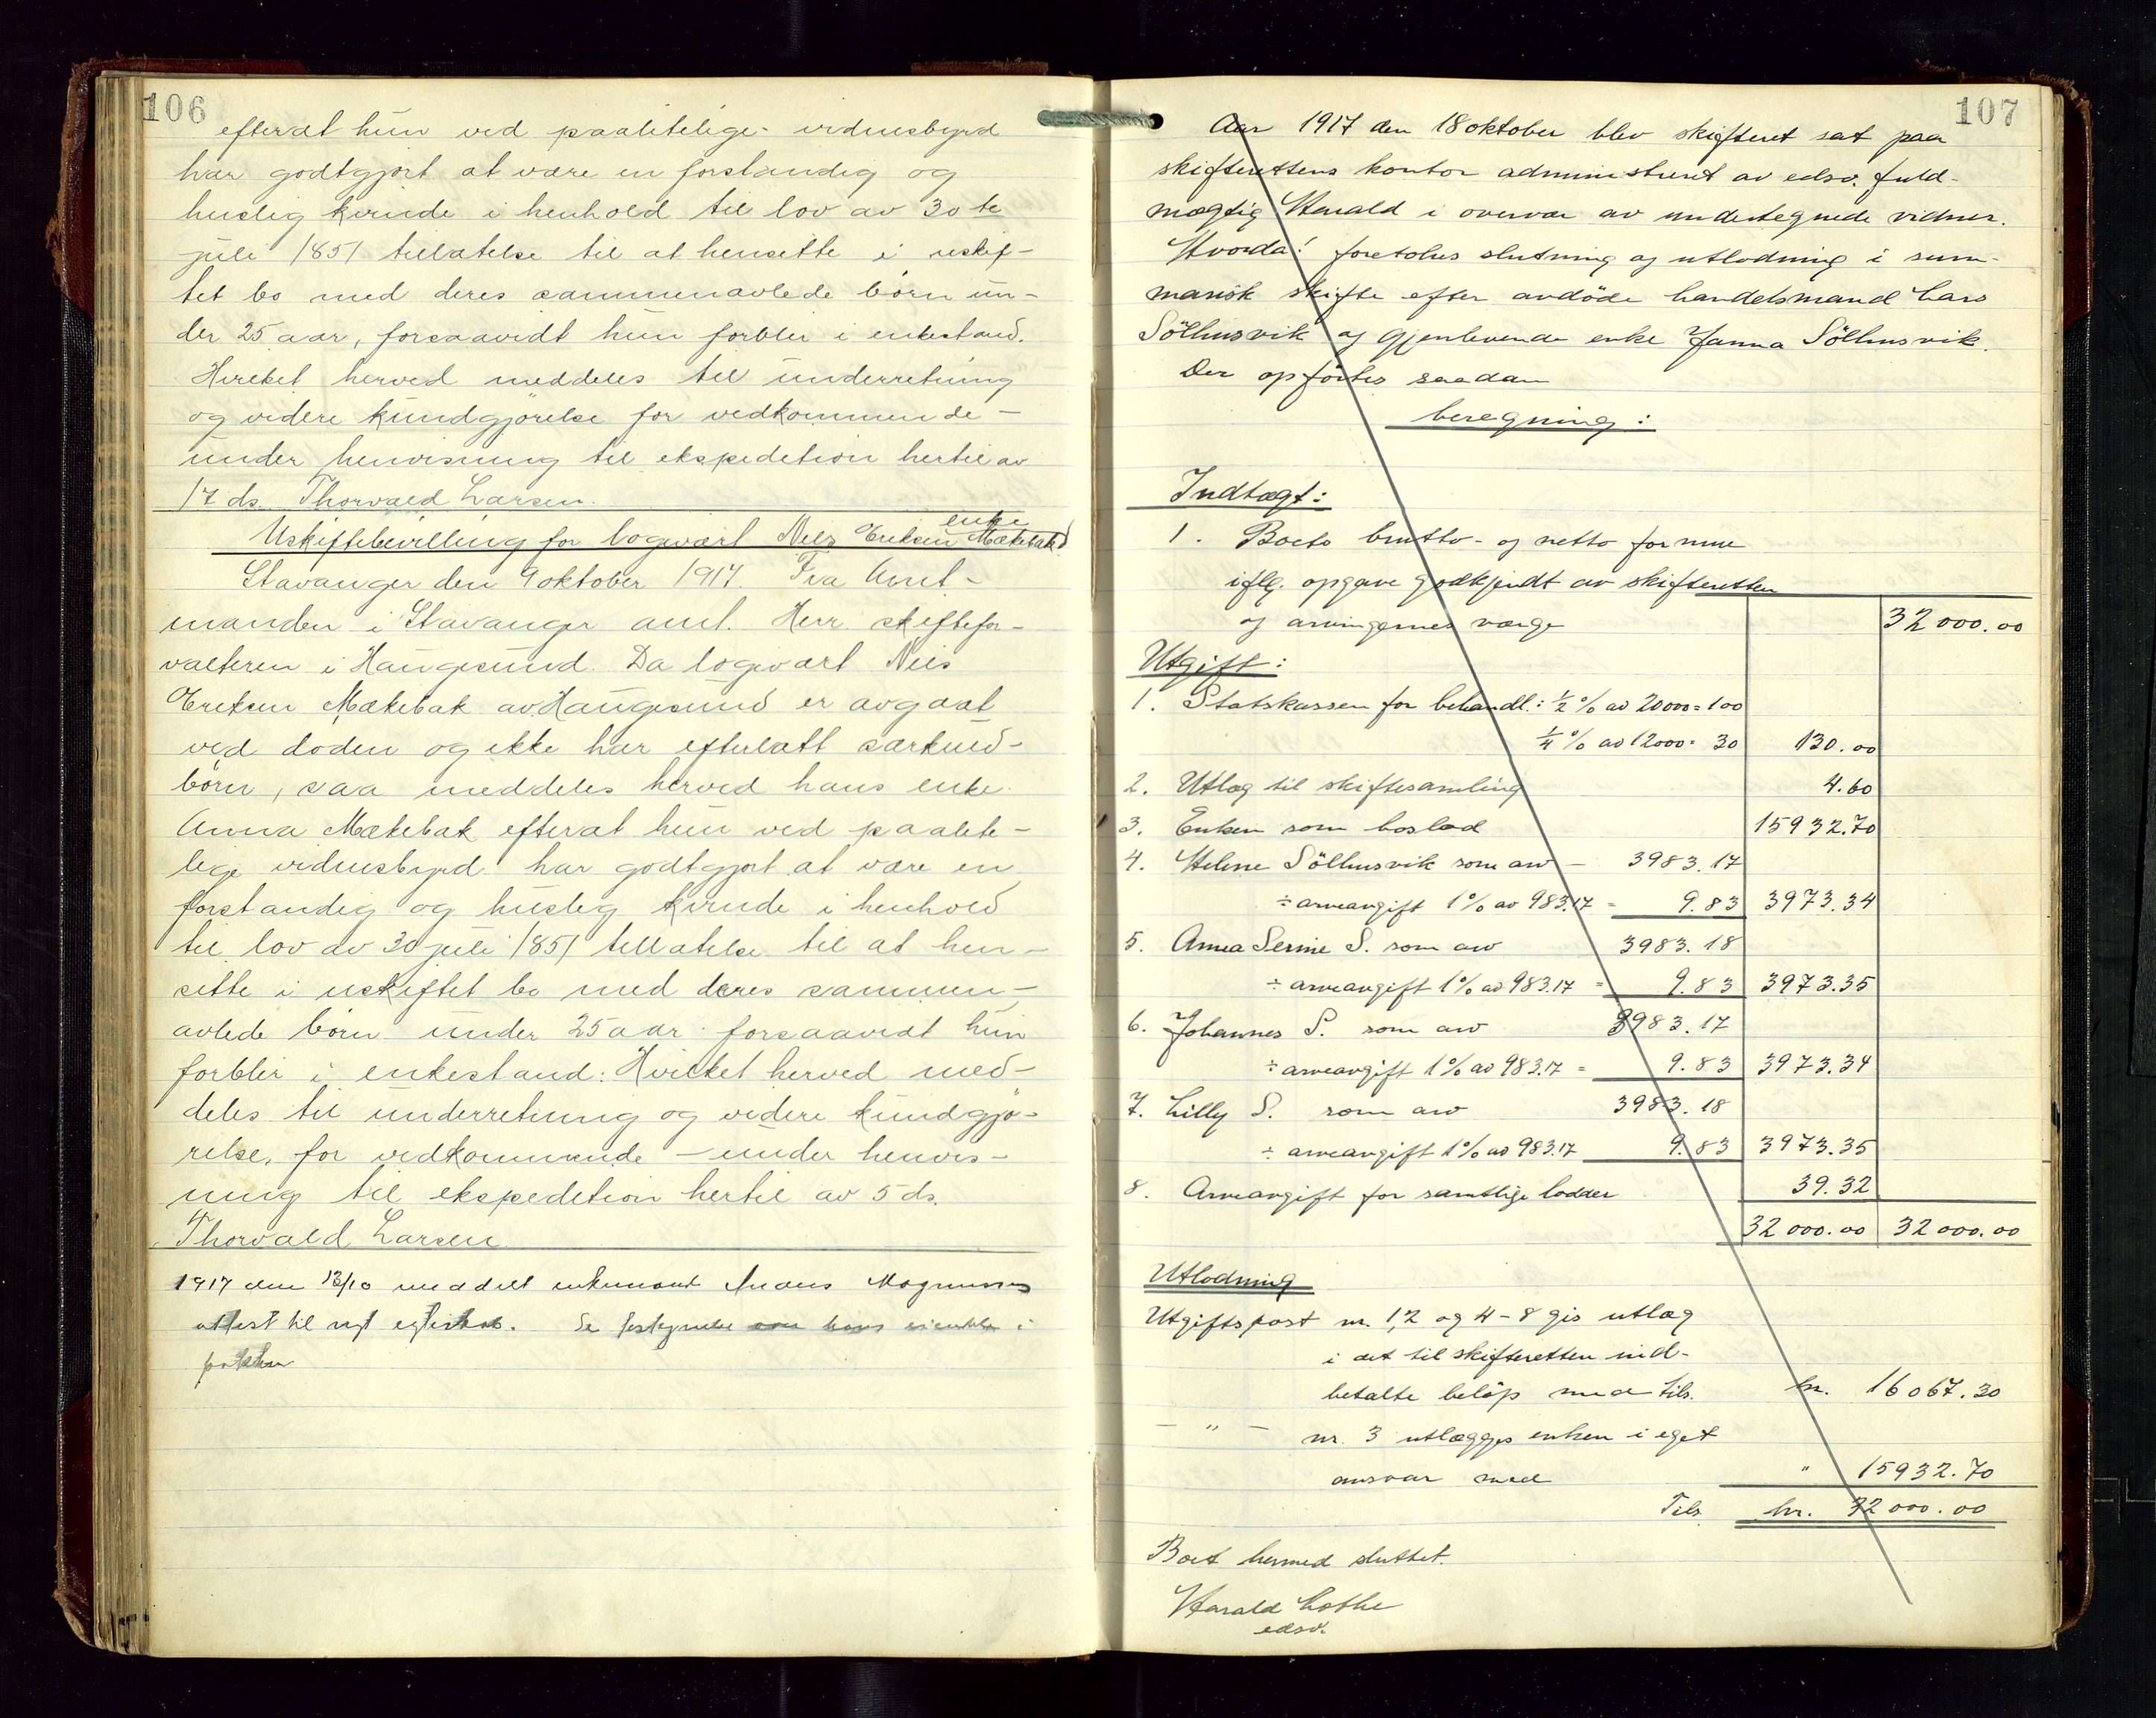 106
efterat hun ved paalitelige vidnesbyrd
har godtgjort at være en forstandig og
huslig kvinde i henhold til lov av 30te
juli 1851 tillatelse til at hensitte i uskif-
tet bo med deres sammenavlede børn un-
der 25 aar, forsaavidt hun forblir i enkestand.
Hvilket herved meddeles til underretning
og videre kundgjørelse for vedkommende -
under henvisning til ekspedition hertil av
17 ds. Thorvald Larsen.
Uskiftebevilling for logvært Nils Eriksen Mækebaks enke
Stavanger den 9 oktober 1917. Fra Amt-
manden i Stavanger amt. Herr skiftefor-
valteren i Haugesund. Da logvært Nils
Eriksen Mækebak av Haugesund er avgaat
ved døden og ikke har efterlatt særkuld-
børn, saa meddeles herved hans enke
Anna Mækebak efterat hun ved paalite-
lige vidnesbyrd har godtgjort at være en
forstandig og huslig kvinde i henhold
til lov av 30 juli 1851 tillatelse til at hen-
sitte i uskiftet bo med deres sammen-
avlede børn under 25 aar forsaavidt hun
forblir i enkestand: Hvilket herved med-
deles til underretning og videre kundgjø-
relse, for vedkommende - under henvis-
ning til ekspedition hertil av 5 ds.
Thorvald Larsen
1917 den 13/10 meddelt enkemand Magnussen
attest til nyt egteskab. Se i
pakken
107
Aar 1917 den 18 oktober blev skifteret sat paa
skifterettens kontor administreret av edsv. fuld-
mægtig Harald i overvær av undertegnede vidner.
Hvorda! foretokes slutning og utlodning i sum-
marisk skifte efter avdöde handelsmand Lars
Sölhusvik og gjenlevende enke Janna Sölhusvik.
Der opförtes saadan
beregning:
Indtægt:
1. Boets brutto- og netto formue
iflg. opgave godkjendt av skifteretten
og arvingernes værge 32 000.00
Utgift:
1. Statskassen for behandl.: ½ % av 20000 = 100
¼ % av 12000 = 30 130.00
2. Utlæg til skiftesamling 4.60
3. Enken som boslod 15932.70
4. Helene Sölhusvik som arv - 3983.17
÷ arveavgift 1% av 983.17 = 9.83 3973.34
5. Anna Serine S. som arv 3983.18
÷ arveavgift 1% av 983.17 = 9.83 3973.35
6. Johannes S. som arv 3983.17
÷ arveavgift 1% av 983.17 = 9.83 3973.34
7. Lilly S. som arv 3983.18
÷ arveavgift 1% av 983.17 9.83 3973.35
8. Arveavgift for samtlige lodder 39.32
32 000.00 32 000.00
Utlodning
Utgiftspost nr. 1, 2 og 4-8 gis utlæg
i det til skifteretten ind-
betalte belöp med tils. kr. 16067.30
- " - nr. 3 utlægges enken i eget
ansvar med " 15932.70
Tils. kr. 32 000.00
Boet hermed sluttet.
Harald Lothe
edsv.